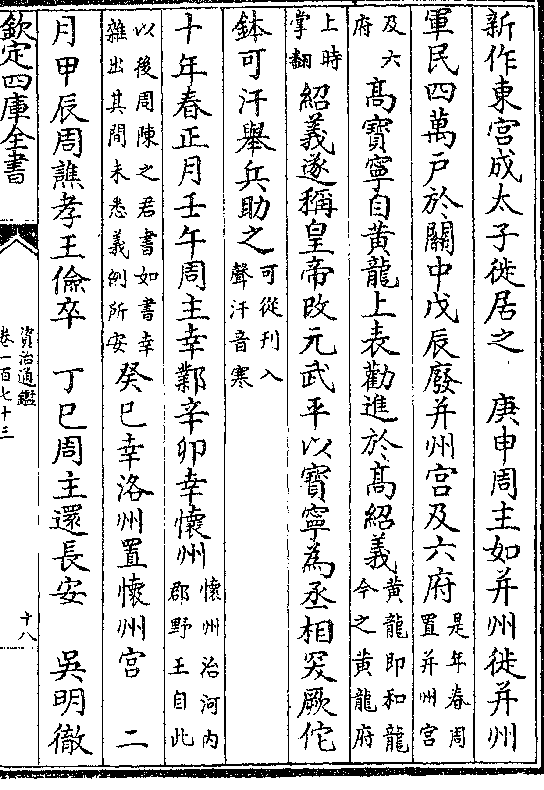 新作東宮成太子徙居之　庚申周主如并州徙并州
軍民四萬戶於關中戊辰廢并州宮及六府是年春周置并州宮
及六府高寶寧自黄龍上表勸進於高紹義黄龍即和龍今之黄龍府
上時掌翻紹義遂稱皇帝改元武平以寶寧為丞相突厥佗
鉢可汗舉兵助之可從刋入聲汗音寒
十年春正月壬午周主幸鄴辛卯幸懷州懷州治河内郡野王自此
以後周陳之君書如書幸雜出其間未悉義例所安癸巳幸洛州置懷州宮　二
月甲辰周譙孝王儉卒　丁巳周主還長安　吳明徹
欽定四庫全書
資治通鑑
卷一百七十三
十八